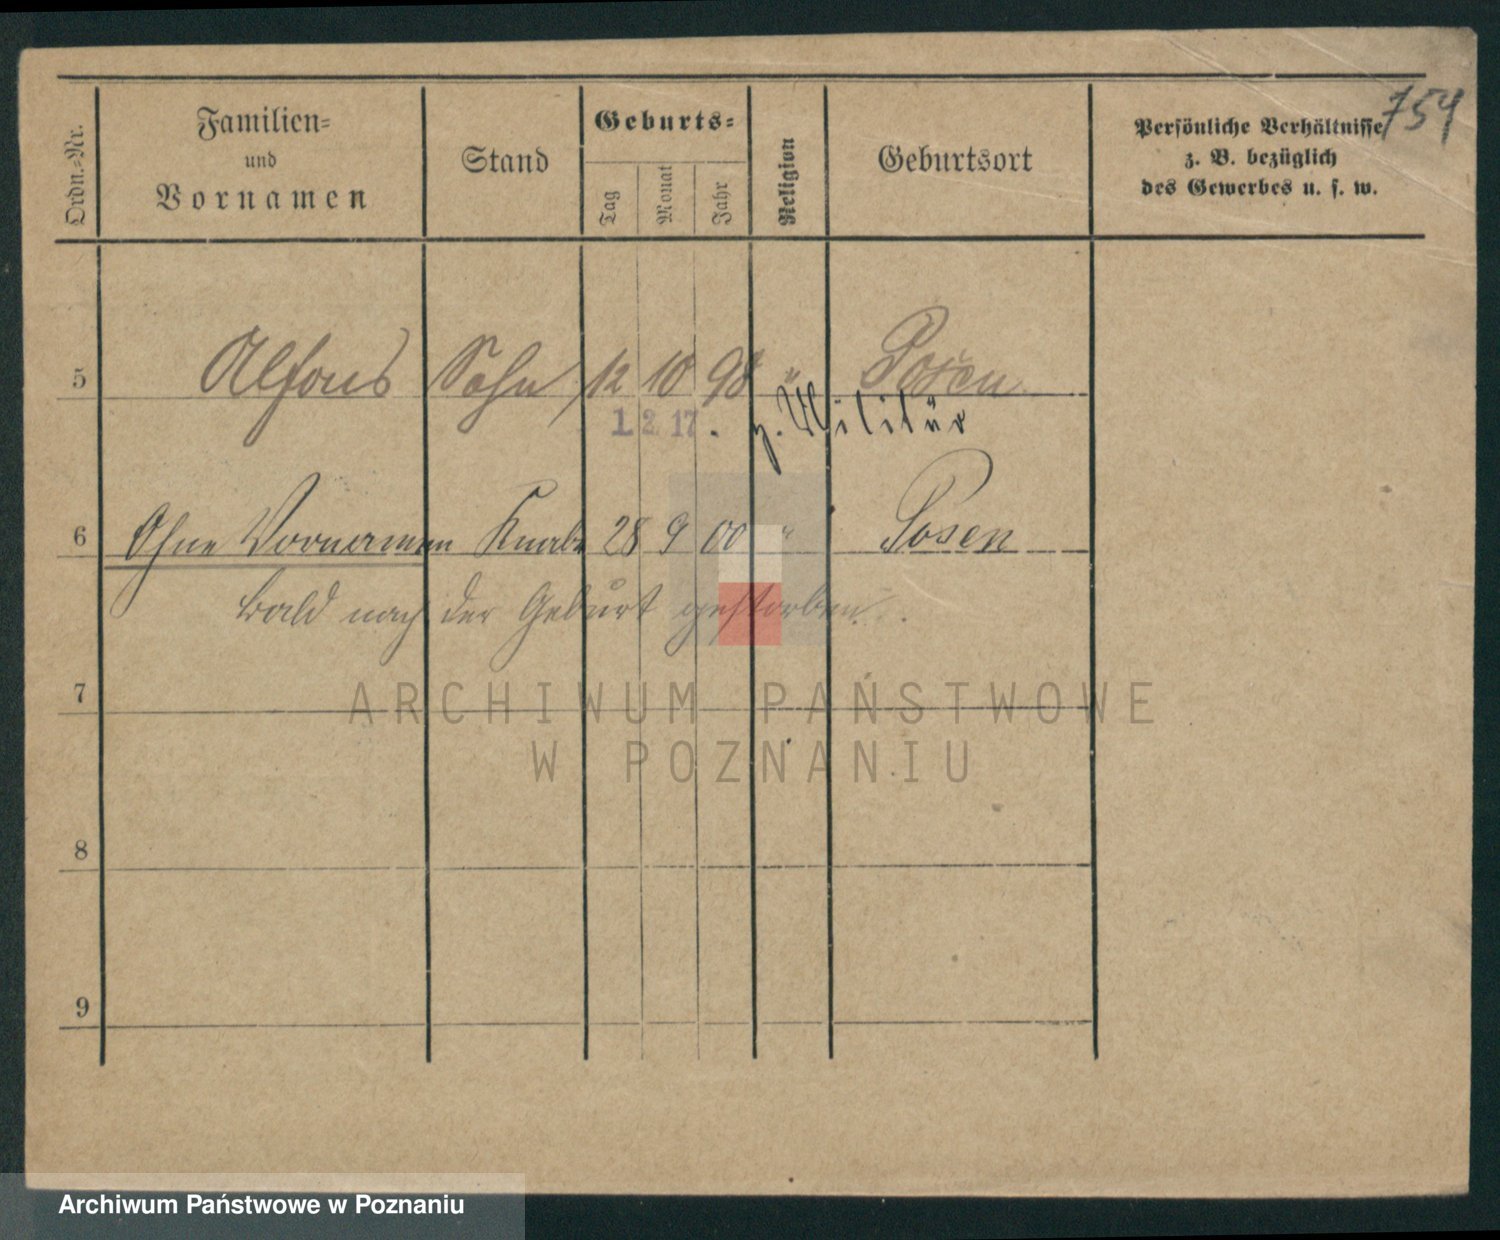 754
Ordn.-Nr.
Familien-
und
Vornamen
Stand
Geburts-
Tag
Monat
Jahr
Religion
Geburtsort
Persönliche Verhältnisse
z. B. bezüglich
des Gewerbes u. s. w.
5 Alfons Sohn 12 10 98 " Posen
1. 2. 17. z. Militär
6 Ohne Vornamen Knabe 28 9 00 " Posen
bald nach der Geburt gestorben.
7
ARCHIWUM PAŃSTWOWE
W POZNANIU
8
9
Archiwum Państwowe w Poznaniu